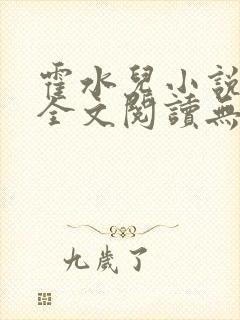 霍水兒小說
全文閱讀無
九歲了